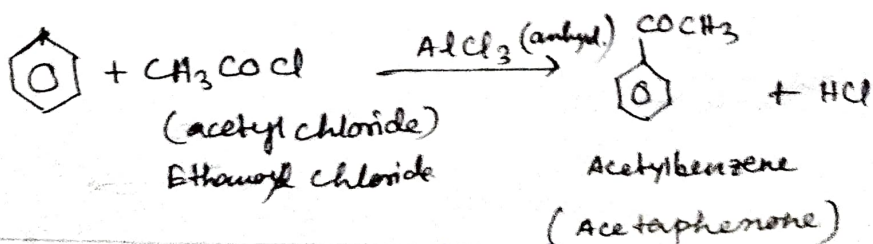 + CH3COCl AlCl3 (anhyd.) COCH3 + HCl
(acetyl chloride)
Ethanoyl chloride
Acetylbenzene
(Acetaphenone)